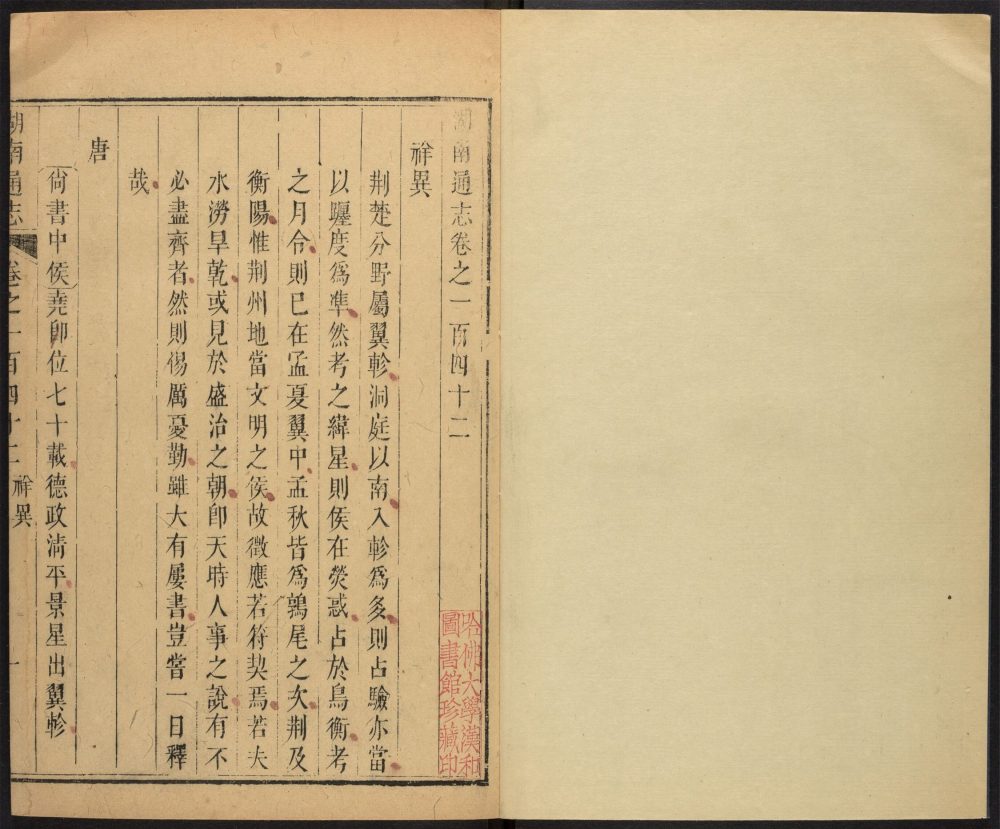 湖南通志卷之一百四十二
祥異
荆楚分野屬翼軫洞庭以南入軫爲多則占驗亦當
以躔度爲準然考之緯星則侯在熒惑占於鳥衡考
之月令則已在孟夏翼中孟秋皆爲鶉尾之次荆及
衡陽惟荆州地當文明之侯故徵應若符契焉若夫
水澇旱乾或見於盛治之朝卽天時人事之說有不
必盡齊者然則惕厲憂勤雖大有屢書豈嘗一日釋
哉
唐
尙書中侯堯卽位七十載德政淸平景星出翼軫
湖南通志
卷之一百四十二
祥異
一
哈佛大學漢和
圖書館珍藏印